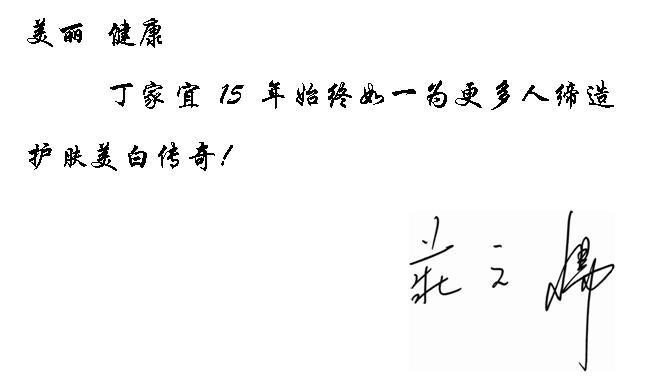 美丽 健康
丁家宜 15 年始终如一为更多人缔造
护肤美白传奇!